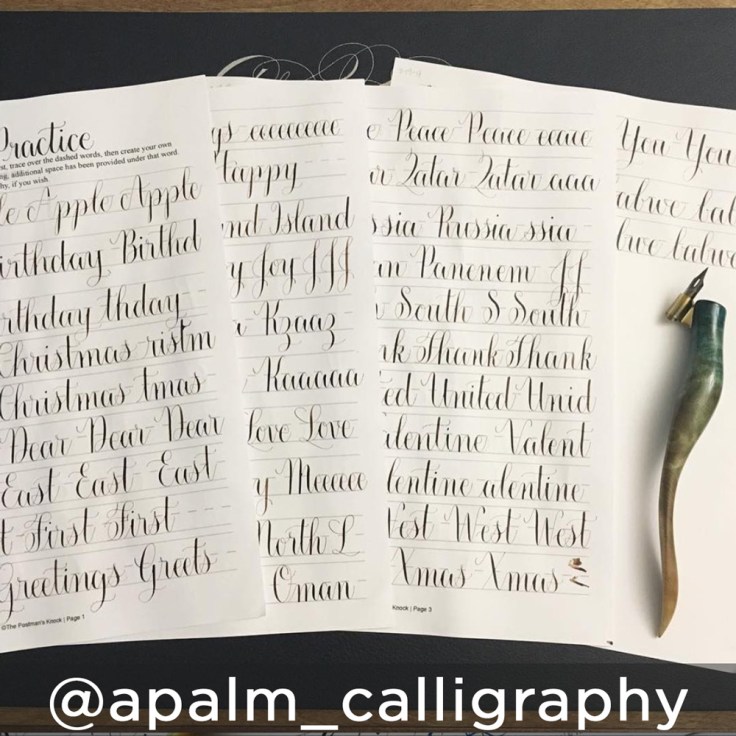 Practice
st, trace over the dashed words, then create your own
ng, additional space has been provided under that word.
hy, if you wish.
le Apple Apple
irthday Birthd
rthday thday
Christmas ristm
Christmas tmas
Dear Dear Dear
East East East
t First First
Greetings Greets
©The Postman's Knock | Page 1
gs eeeeeeeee
Happy
nd Island
y Joy JJJ
Kzaaz
Kaaaaa
Love Love
y Maecce
North L
Oman
e Peace Peace eeace
ar Qatar Qatar aaa
ssia Russia ssia
an Panenem JJ
South S South
nk Thank Thank
ed United Unid
lentine Valent
lentine alentine
est West West
Xmas Xmas
Knock | Page 3
You You
@apalm_calligraphy